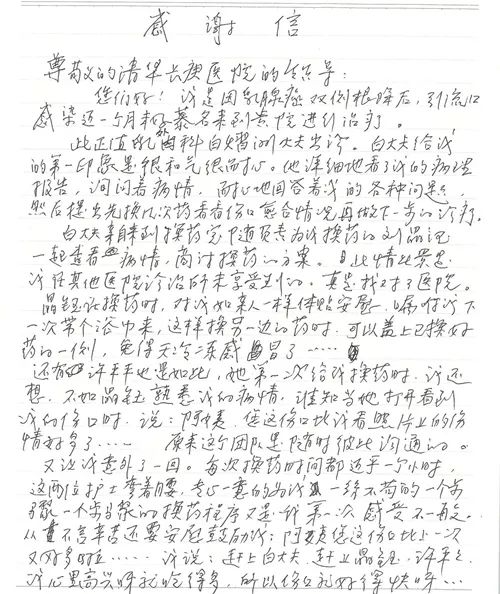 感谢信
尊敬的清华长庚医院的领导：
您们好！我是因乳腺癌双侧根除后，引流口
感染近一个月未好慕名来到贵院进行治疗。
此正值乳腺科白熠洲大夫出诊。白大夫给我
的第一印象是很和气很耐心。他详细地看了我的病理
报告，询问着病情，耐心地回答着我的各种问题，
然后提出先换几次药看看伤口愈合情况再做下一步的诊疗。
白大夫亲自来到换药室随负责为我换药的刘晶钰
一起查看病情，商讨换药的方案。此情此景是
我任其他医院诊治所未享受到的。真是找对了医院。
晶钰在换药时，对我如亲人一样体贴安慰，嘱咐我下
一次带个浴巾来，这样换另一边的药时，可以盖上已换好
药的一侧，免得天冷凉感冒了……
还有许平平也是如此，她第一次给我换药时，我还
想，不如晶钰熟悉我的病情，谁知当她打开看到
我的伤口时，说：阿姨，您这伤口比我看照片上的伤
情好多了…… 原来这个团队是随时彼此沟通的。
又让我意外了一回。每次换药时间都近乎一个小时，
这两位护士弯着腰，专心一意的为我一丝不苟的一个步
骤一个步骤的换药程序又是我第一次感受不一再之。
从不言辛苦还要安慰鼓励我：阿姨您这伤口比上一次
又好多啦…… 我说：赶上白大夫、赶上晶钰、许平平
我心里高兴呀就吃得多，所以伤口就好得快呀…